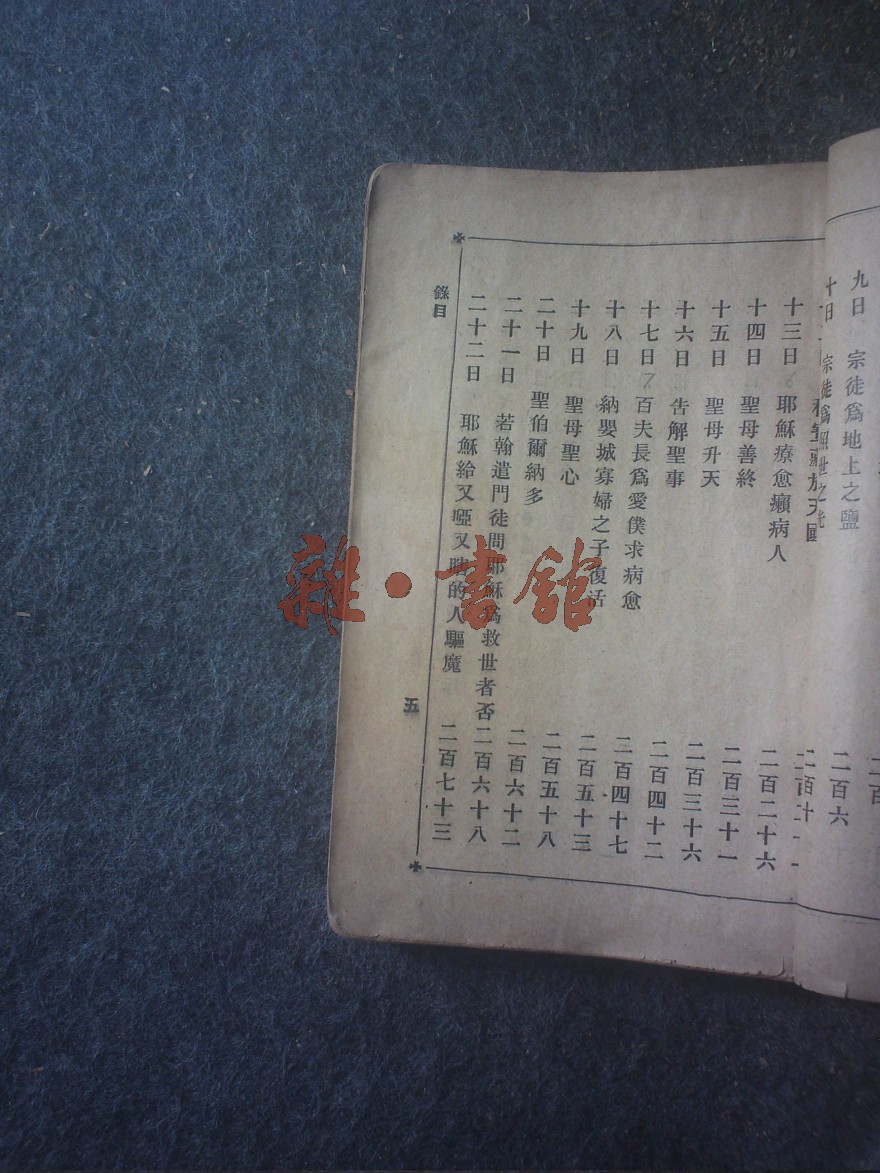 九日 宗徒爲地上之鹽 二百六
十日 宗徒爲照世之光 二百十
天國
十三日 耶穌療愈癩病人 二百二十六
十四日 聖母善終 二百三十一
十五日 聖母升天 二百三十六
十六日 告解聖事 二百四十二
十七日 百夫長爲愛僕求病愈 二百四十七
十八日 納嬰城寡婦之子復活 二百五十三
十九日 聖母聖心 二百五十八
二十日 聖伯爾納多 二百六十二
二十一日 若翰遣門徒問耶穌爲救世者否 二百六十八
二十二日 耶穌給又啞又瞎的人驅魔 二百七十三
錄目
五
雜·書館